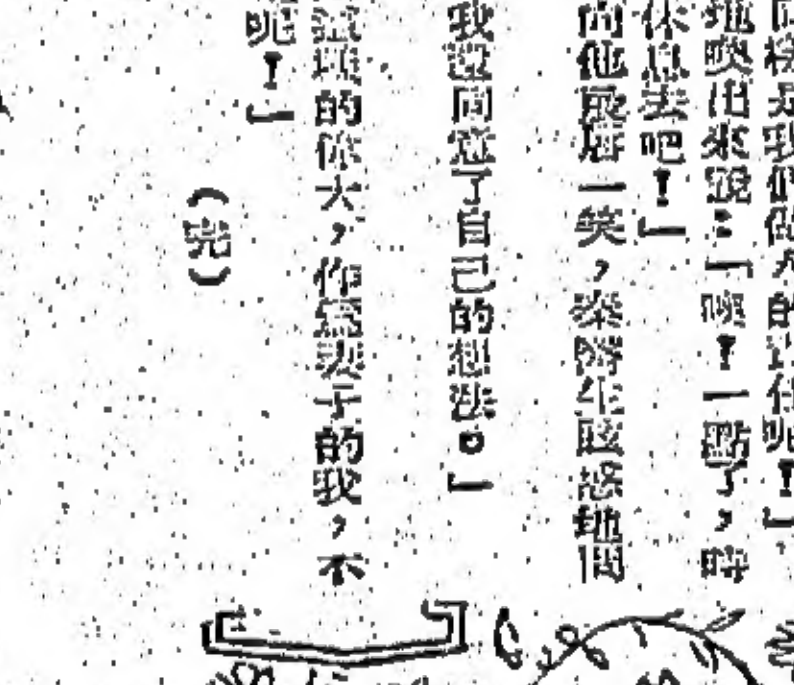 同樣是我們做人的責任呢！」
地喚出來說：「噢！一點了，時
休息去吧！」
向他最后一笑，梁醫生眩惑地問
我還同意了自己的想法。」
的偉大，作爲妻子的我，不
呢！」
（完）